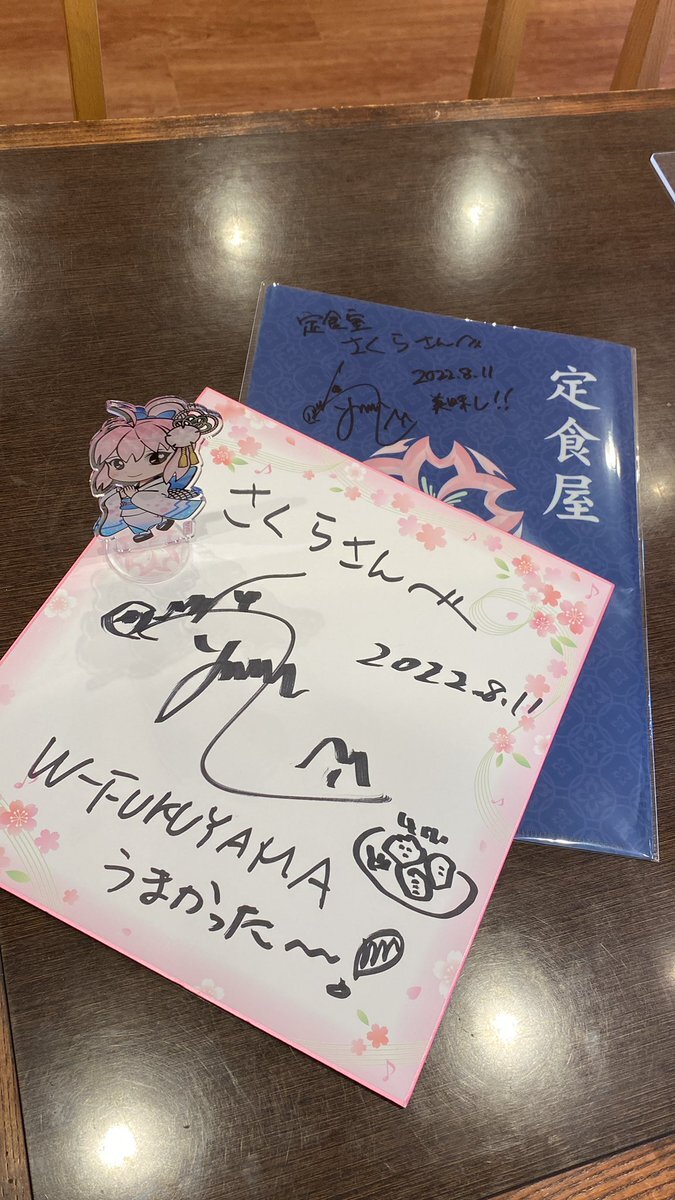 定食屋
さくらさんへ
2022.8.11
美味し!!
定食屋
さくらさんへ
2022.8.11
W-FUKUYAMA
うまかった〜!